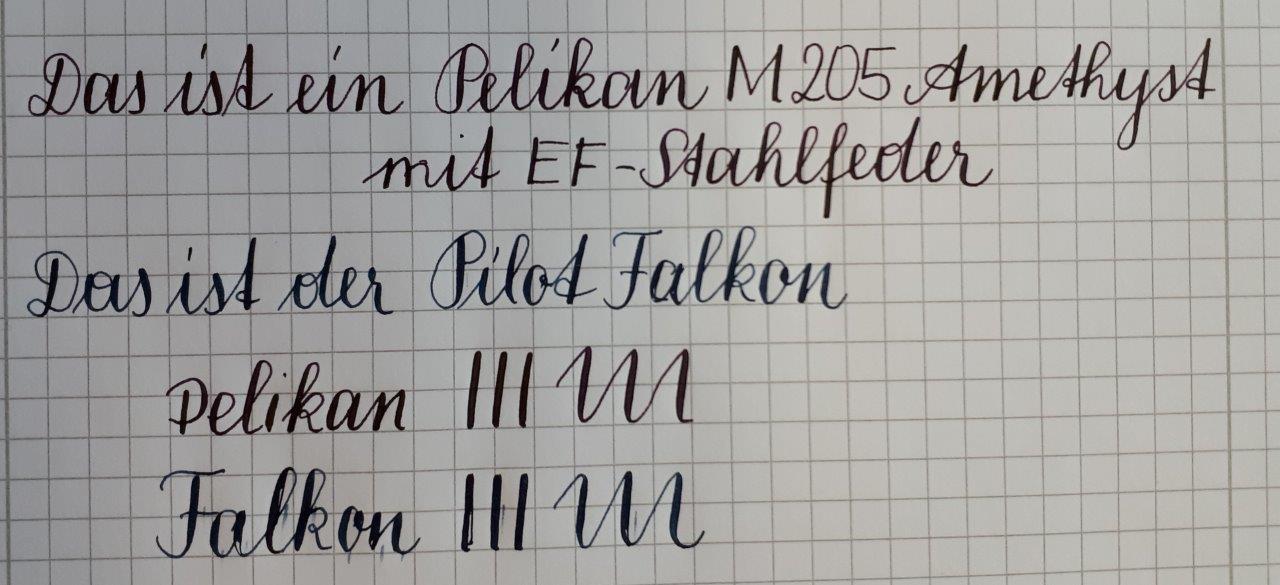 Das ist ein Pelikan M205 Amethyst
mit EF-Stahlfeder
Das ist der Pilot Falkon
Pelikan
Falkon